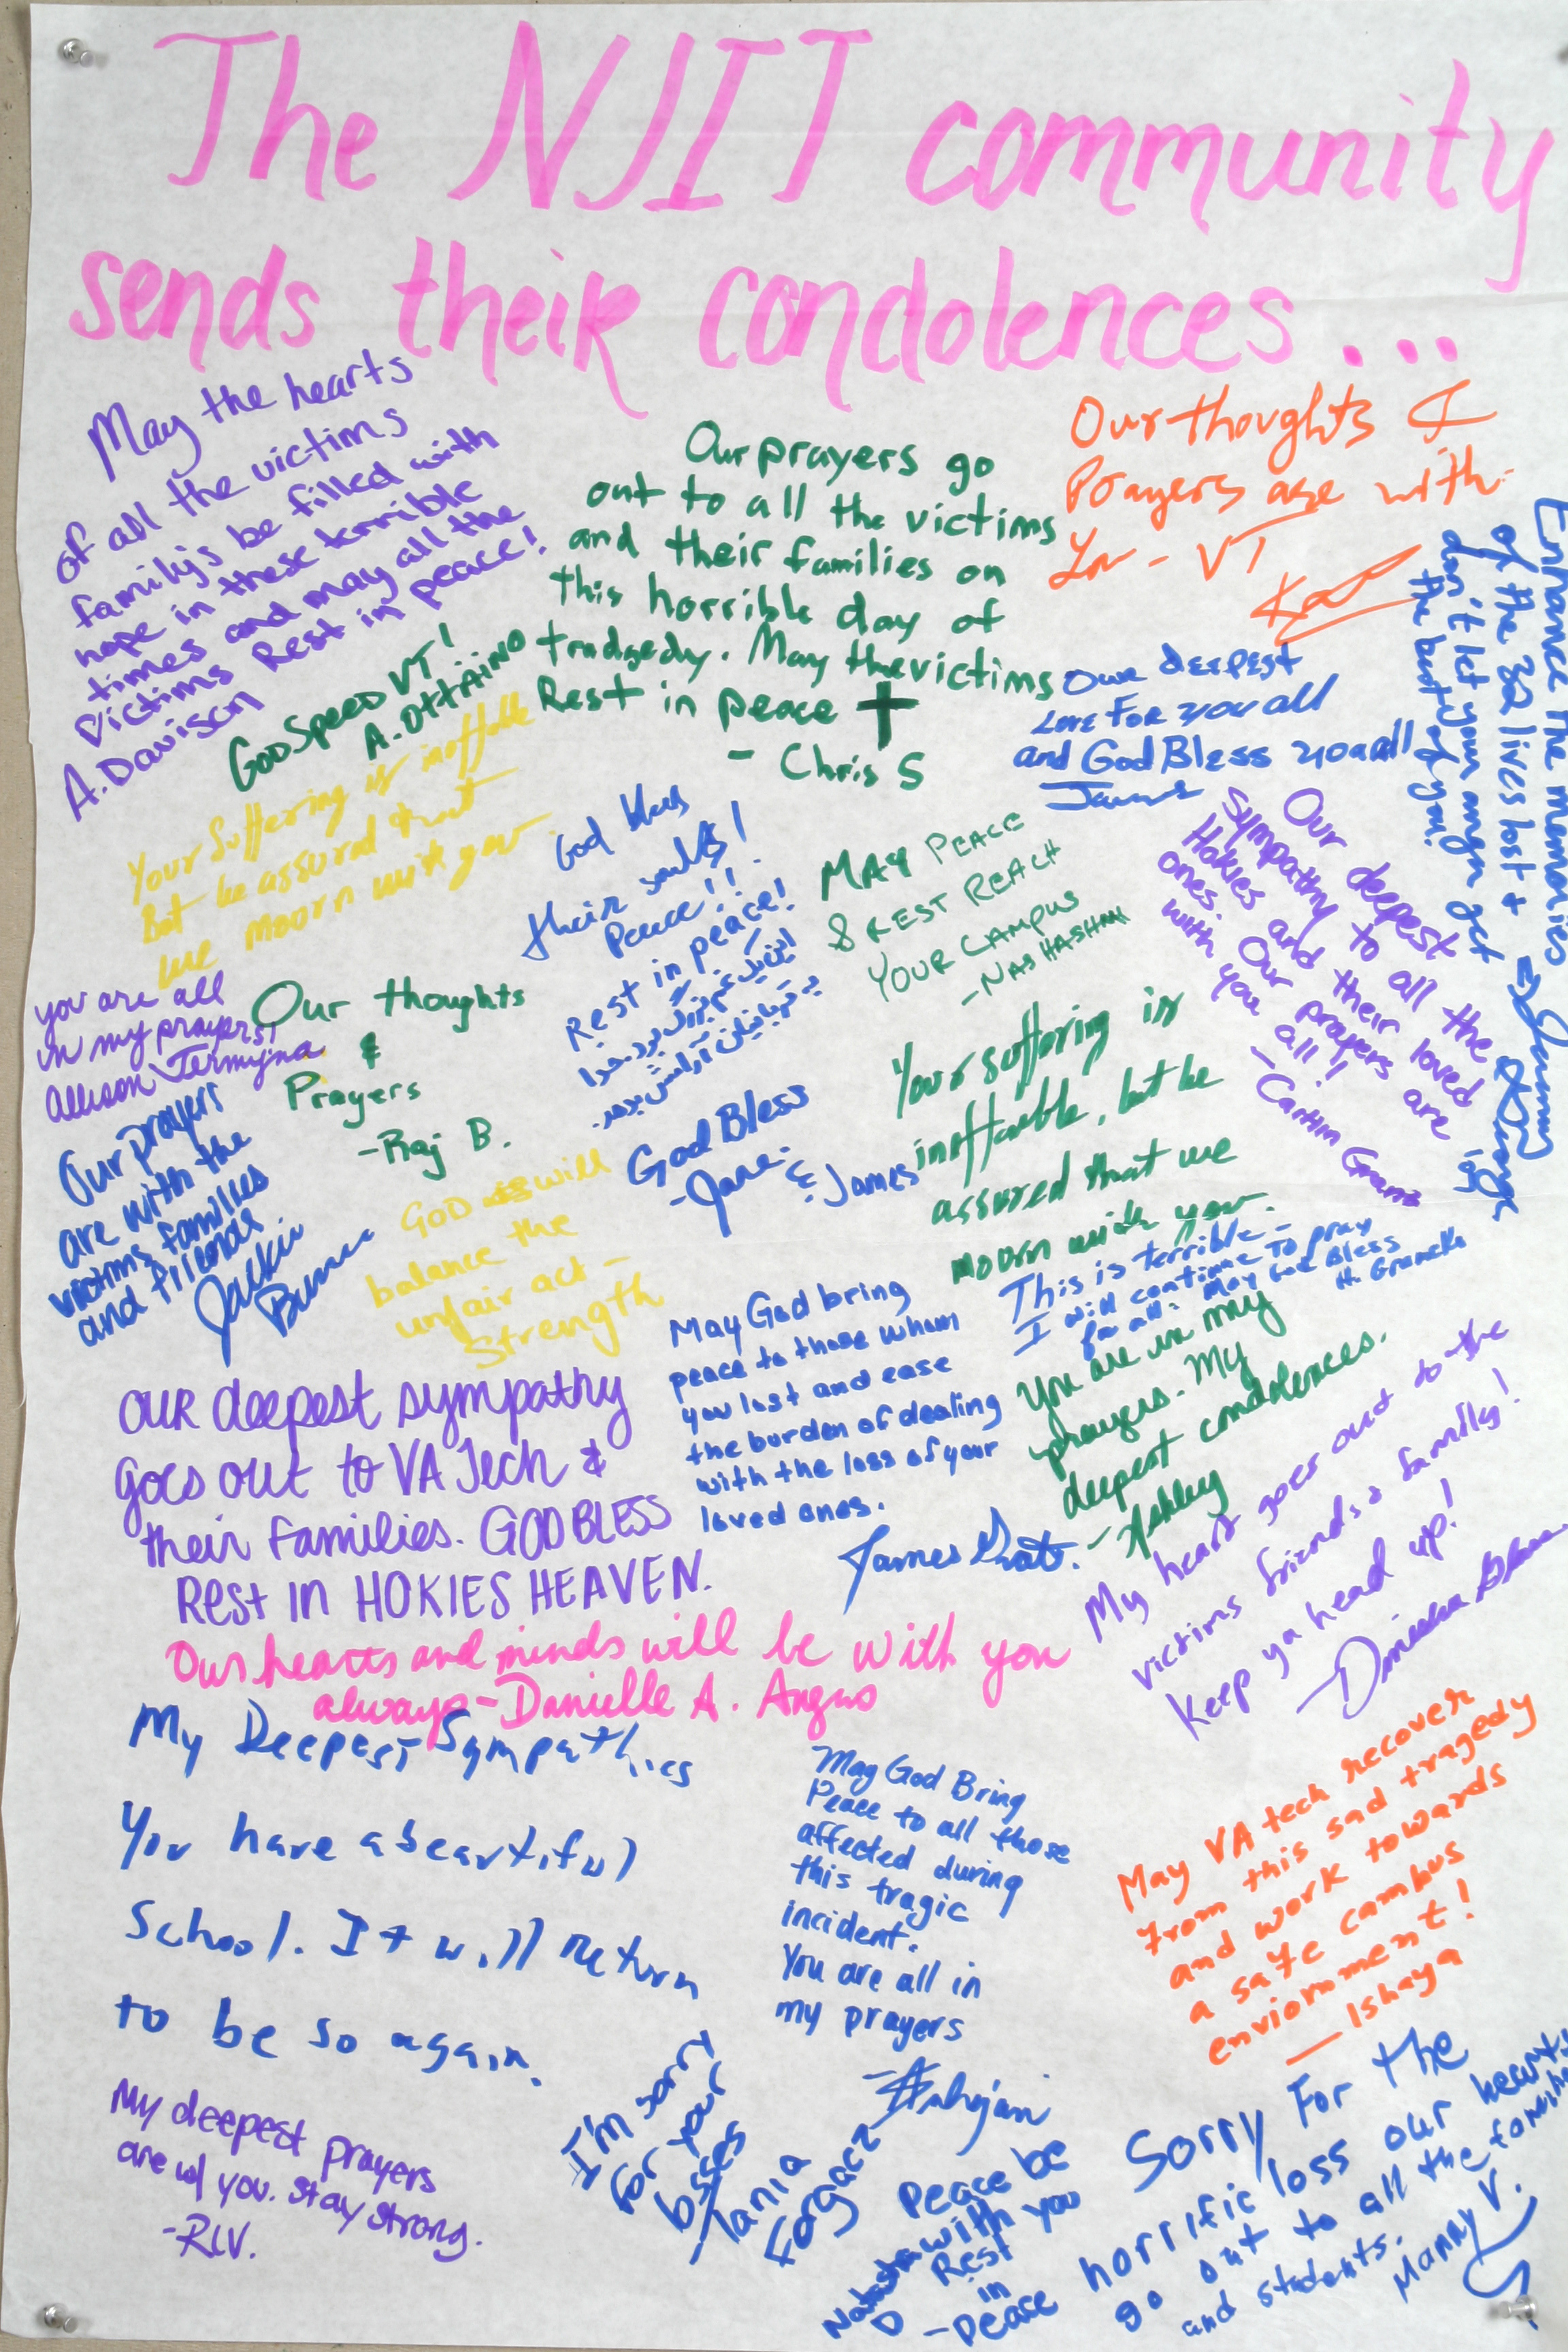 The NJIT community
sends their condolences...
May the hearts
of all the victims
family's be filled with
hope in these terrible
times and may all the
victims Rest in peace!
A. Davison
GODSPEED VT!
A. OTTAIANO
Our prayers go
out to all the victims
and their families on
this horrible day of
tradgedy. May the victims
Rest in peace
- Chris S
Our thoughts &
Prayers are with
You - VT
Enhance the memories
of the 32 lives lost &
don't let your anger get
the best of you!
Our Deepest
Love For you all
and God Bless you all
James
Your suffering is ineffable
But be assured that
we mourn with you.
God bless
their souls!
Peace!!
Rest in peace!
این یک غم بزرگ بود. خدا
به قربانیان آرامش بدهد.
MAY PEACE
& REST REACH
YOUR CAMPUS
- NAS HASHMI
Our deepest
sympathy to all the
Hokies and their loved
ones. Our prayers are
with you all!
- Caitlin Grant
you are all
in my prayers!
Allison Jermyna
Our thoughts
&
Prayers
- Raj B.
Our prayers
are with the
victims families
and friends
Jackie
God Bless
- Jane & James
Your suffering is
ineffable, but be
assured that we
mourn with you.
GOD will
balance the
unfair act -
Strength
This is terrible -
I will continue to pray
for all. May God Bless
May God bring
peace to those whom
you lost and ease
the burden of dealing
with the loss of your
loved ones.
James
You are in my
prayers. My
deepest condolences.
- Ashley
OUR deepest sympathy
goes out to VA Tech &
their families. GOD BLESS
REST IN HOKIES HEAVEN.
My heart goes out to the
victims friends & family!
Keep ya head up!
Our hearts and minds will be with you
always - Danielle A. Angus
My Deepest Sympathies
You have a beautiful
School. It will return
to be so again.
May God Bring
Peace to all those
affected during
this tragic
incident.
You are all in
my prayers
May VA tech recover
from this sad tragedy
and work towards
a safe campus
enviornment!
— Ishaya
My deepest prayers
are w/ you. stay strong.
- RLV.
I'm sorry
for your
losses
- Tania
Forgacz
Peace be
with you
Rest
in
- Peace
Natasha
D
Sorry For the
horrific loss our hearts
go out to all the families
and students.
Manny V.